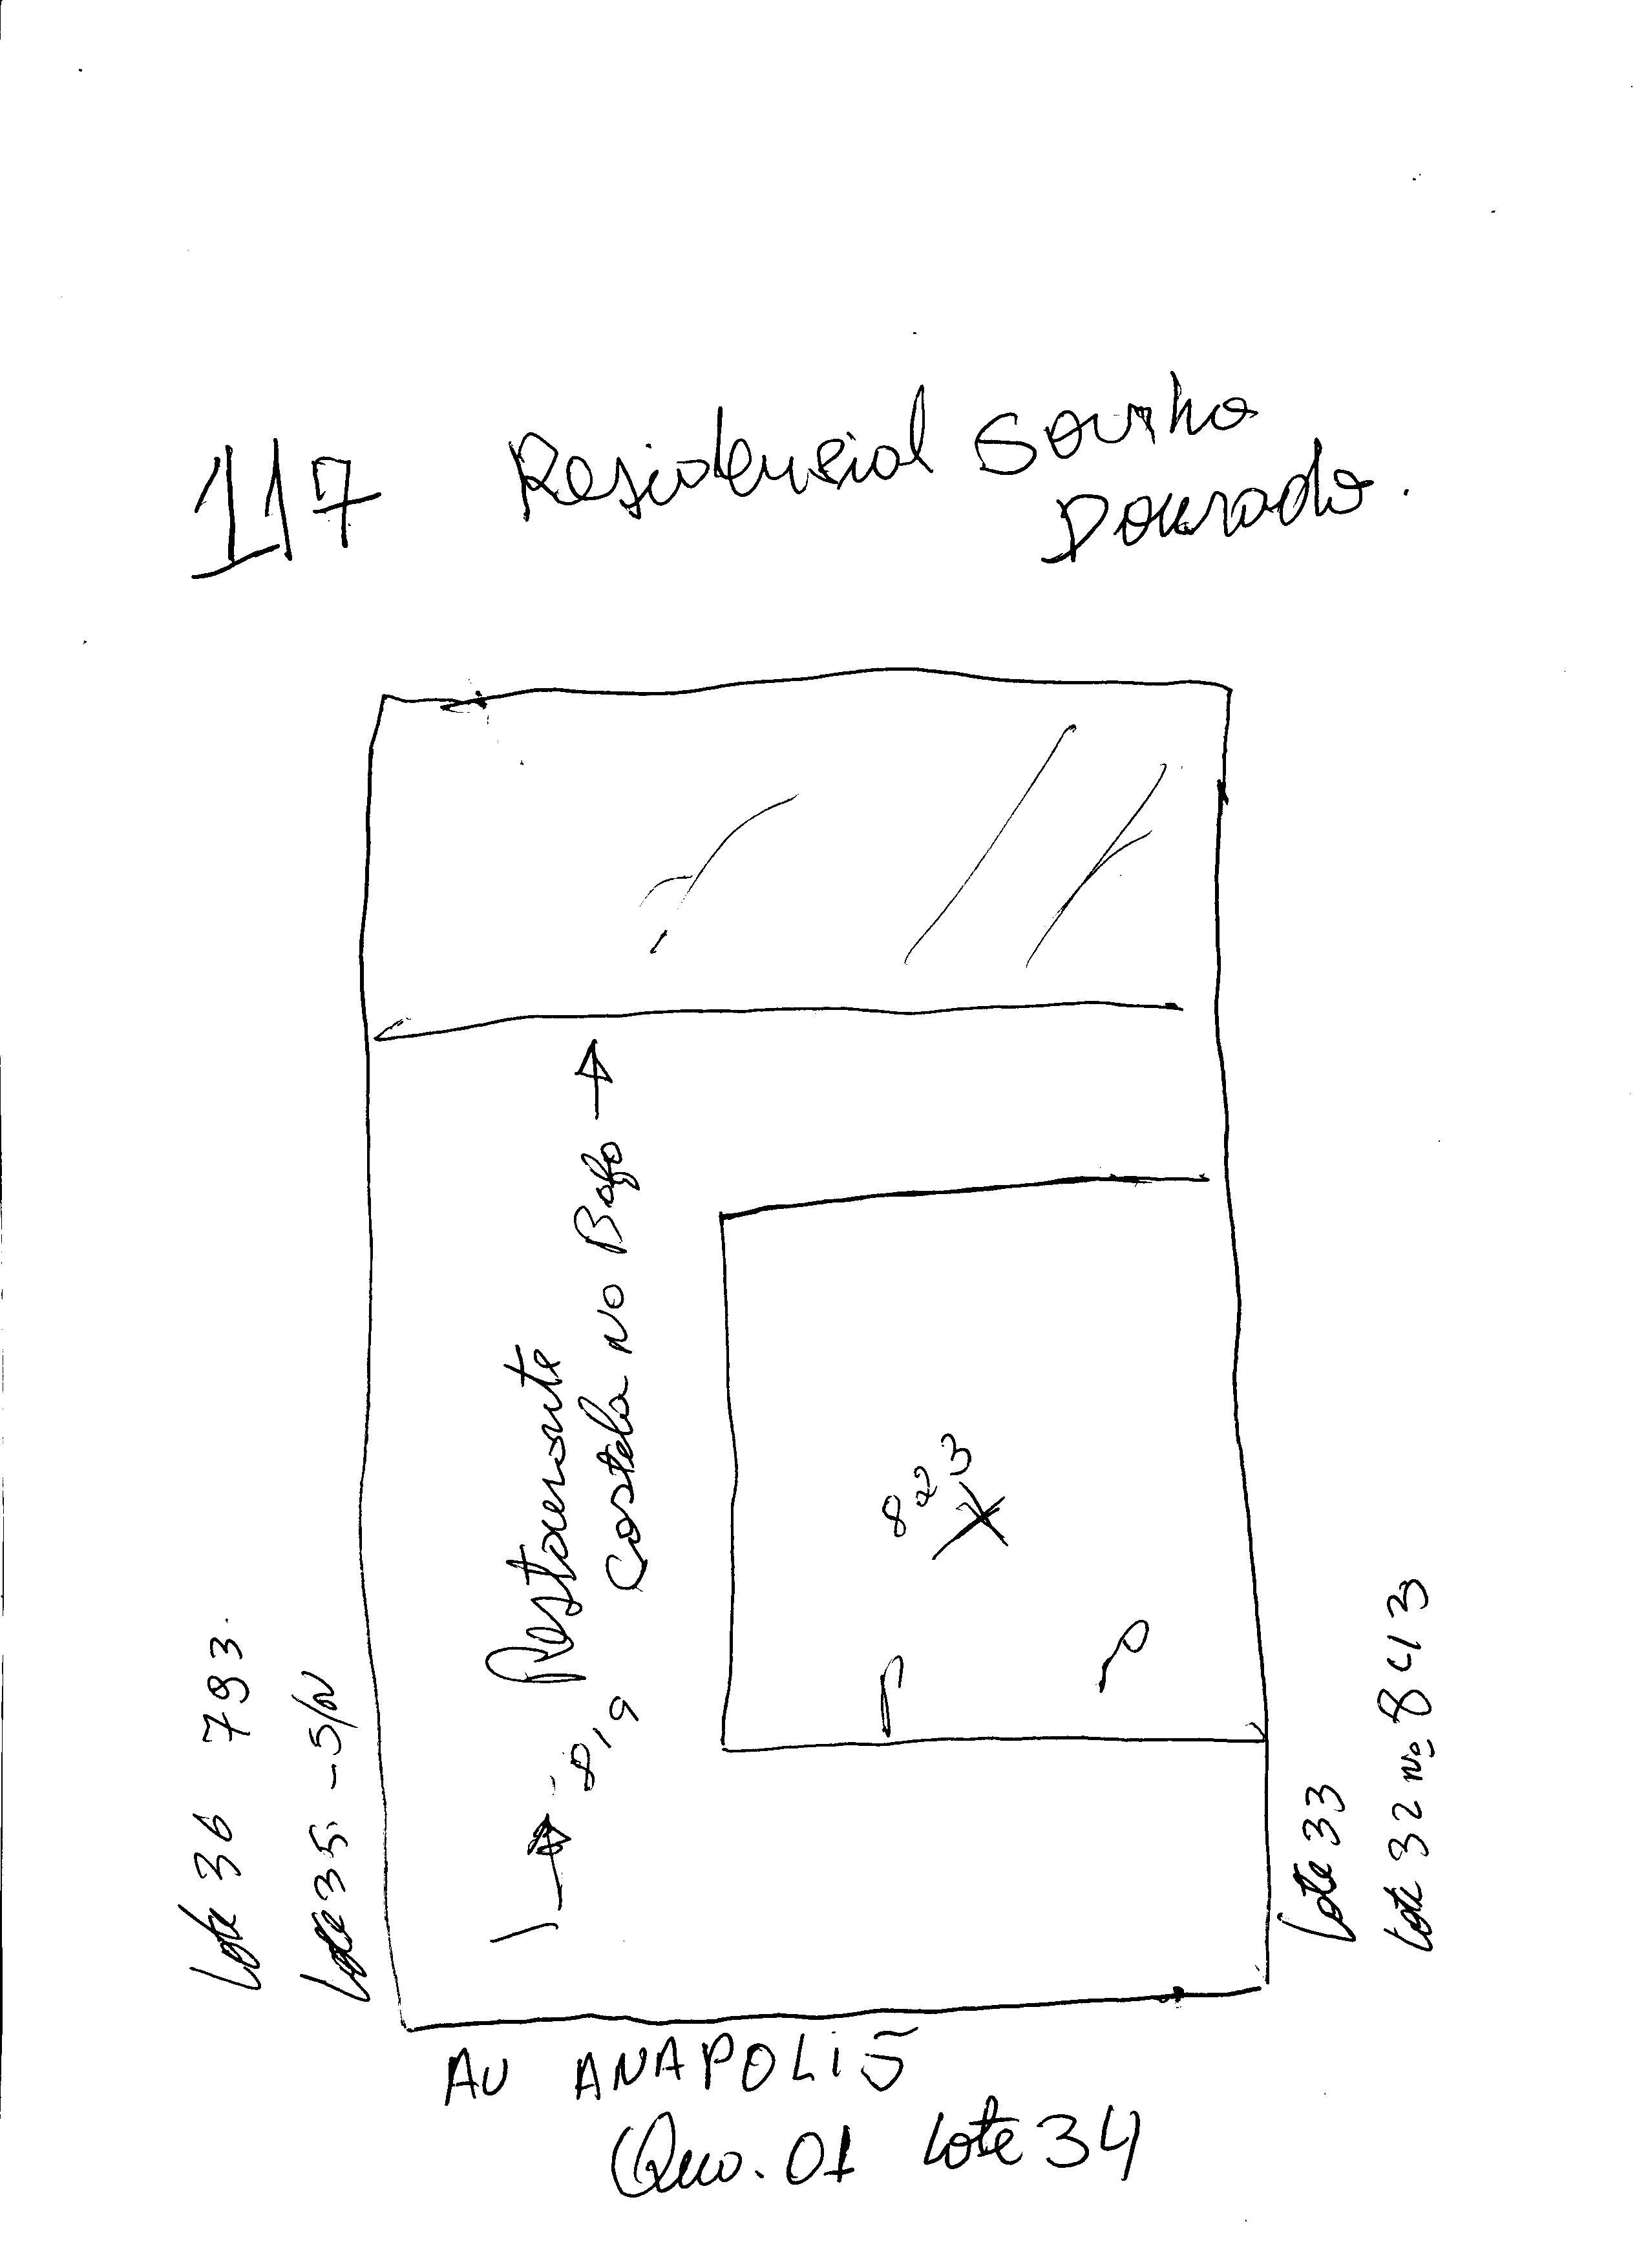 117 Residencial Sonho
Dourado.
Restaurante
Costela no Bafo
819
823
Lote 36 793.
Lote 35. - S/N
Lote 33
Lote 32 nº 843
AV ANAPOLIS
Qua. 01 Lote 34